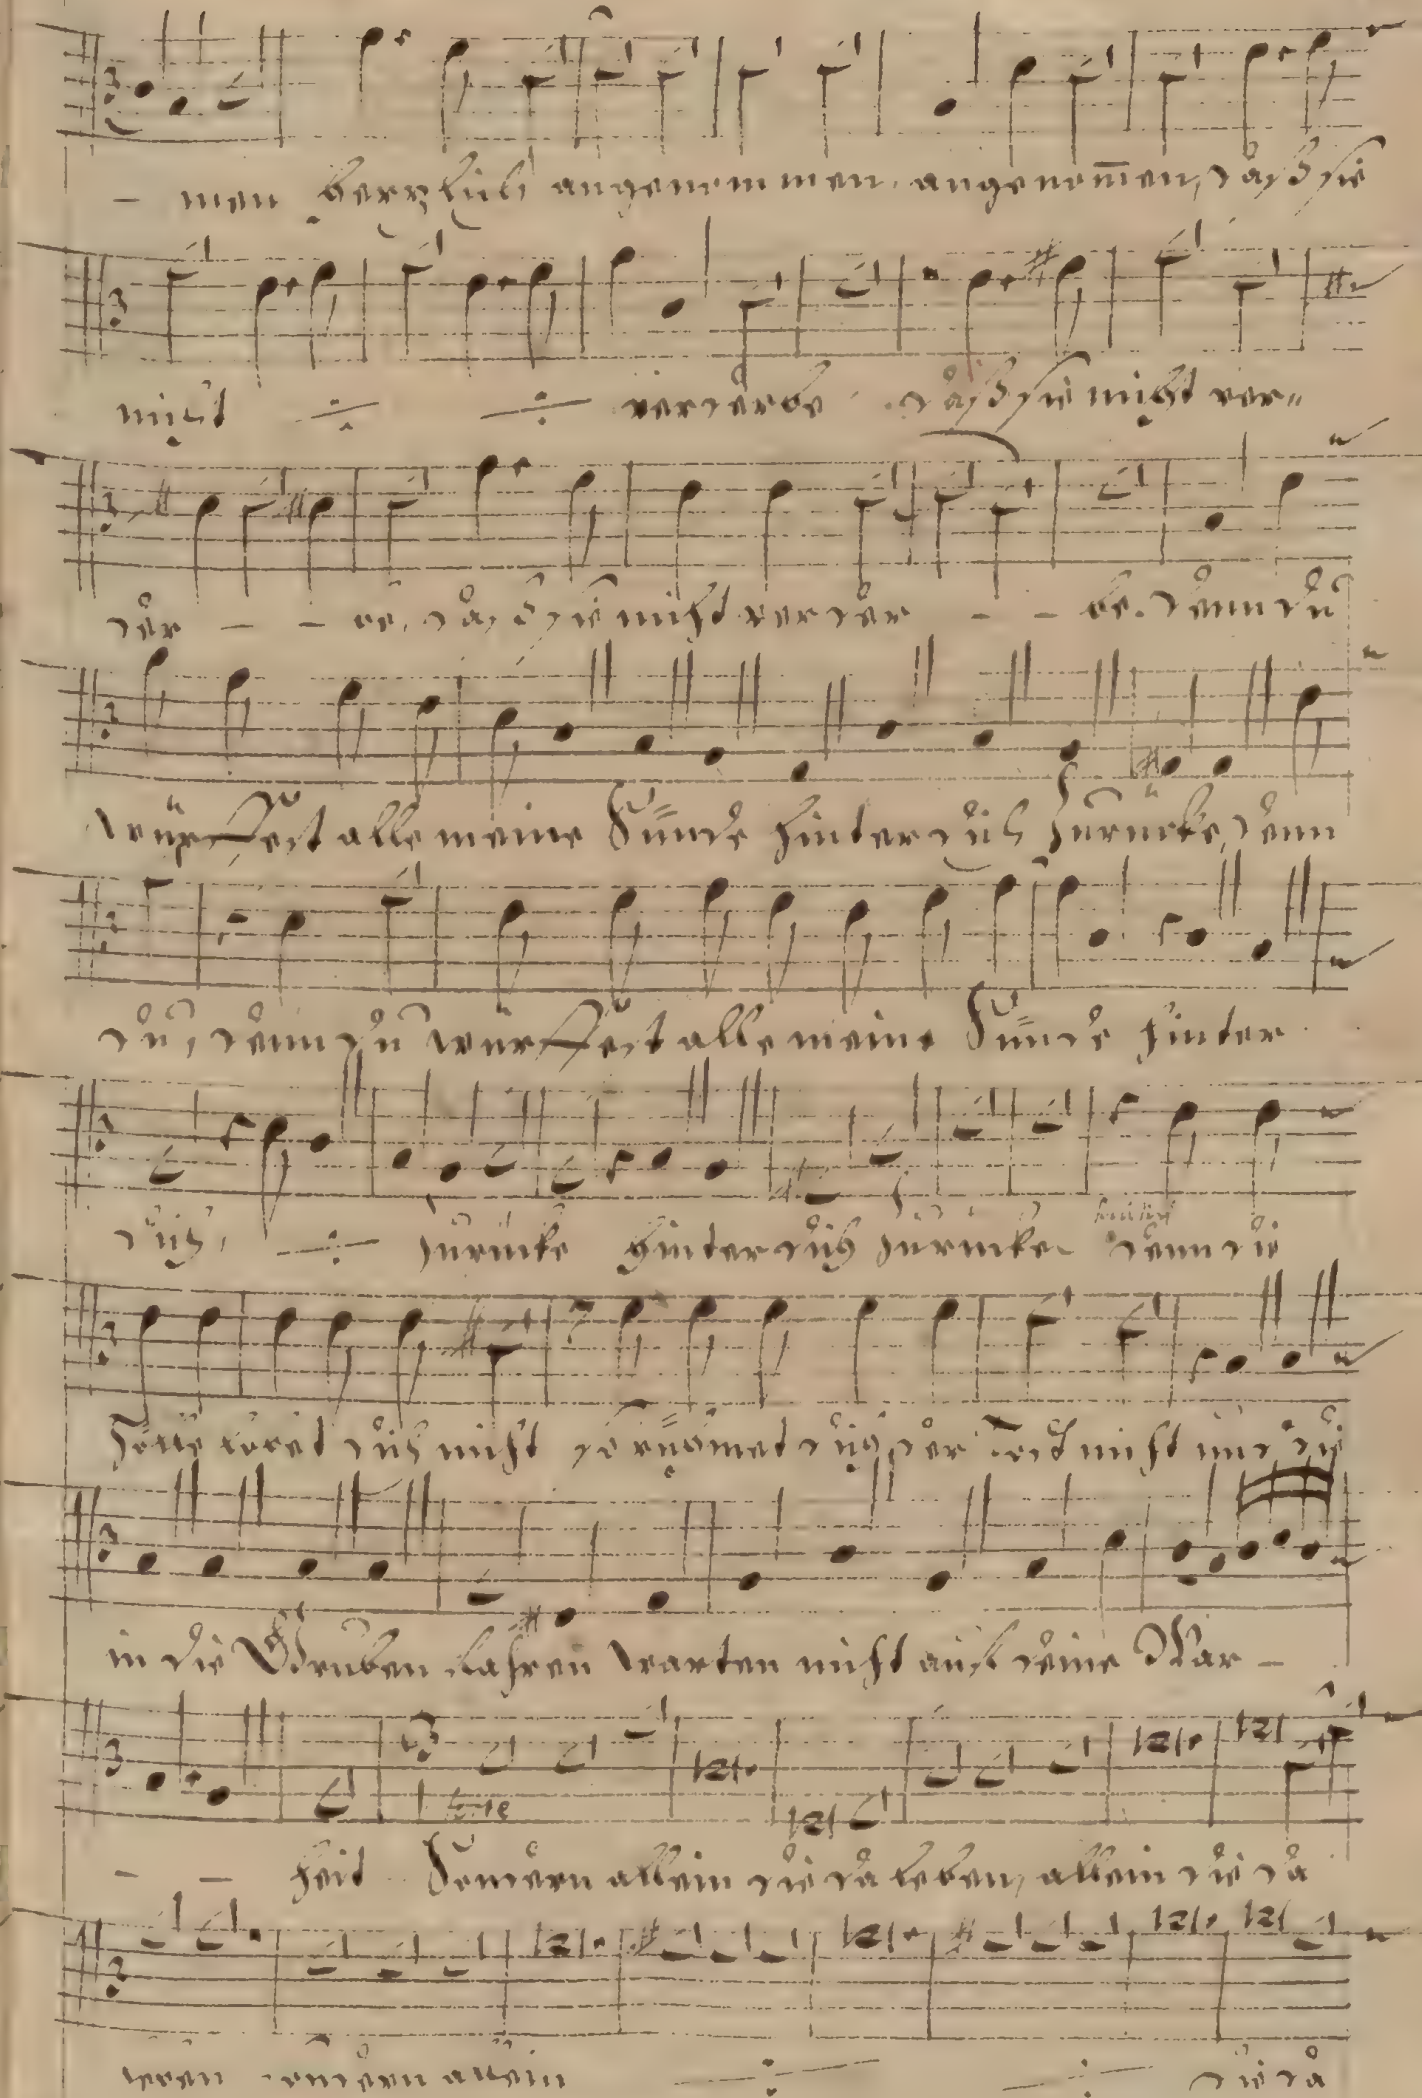 – men herzlich angenommen, angenom̄en, daß sie
nicht ÷ ÷ verderbe daß sie nicht ver=
der – – be, daß sie nicht verder – – be. denn du
würffest alle meine Sünde hinter dich zurücke, denn
du, denn du würffest alle meine Sünde hinter
dich, ÷ zurücke hinter dich zurücke denn die
Helle lobet dich nicht so rühmet dich der Todt nicht und die
in die Gruben fahren warten nicht auf deine War –
– – heit Sondern allein die da leben, allein die da
leben sondern allein ÷ ÷ die da